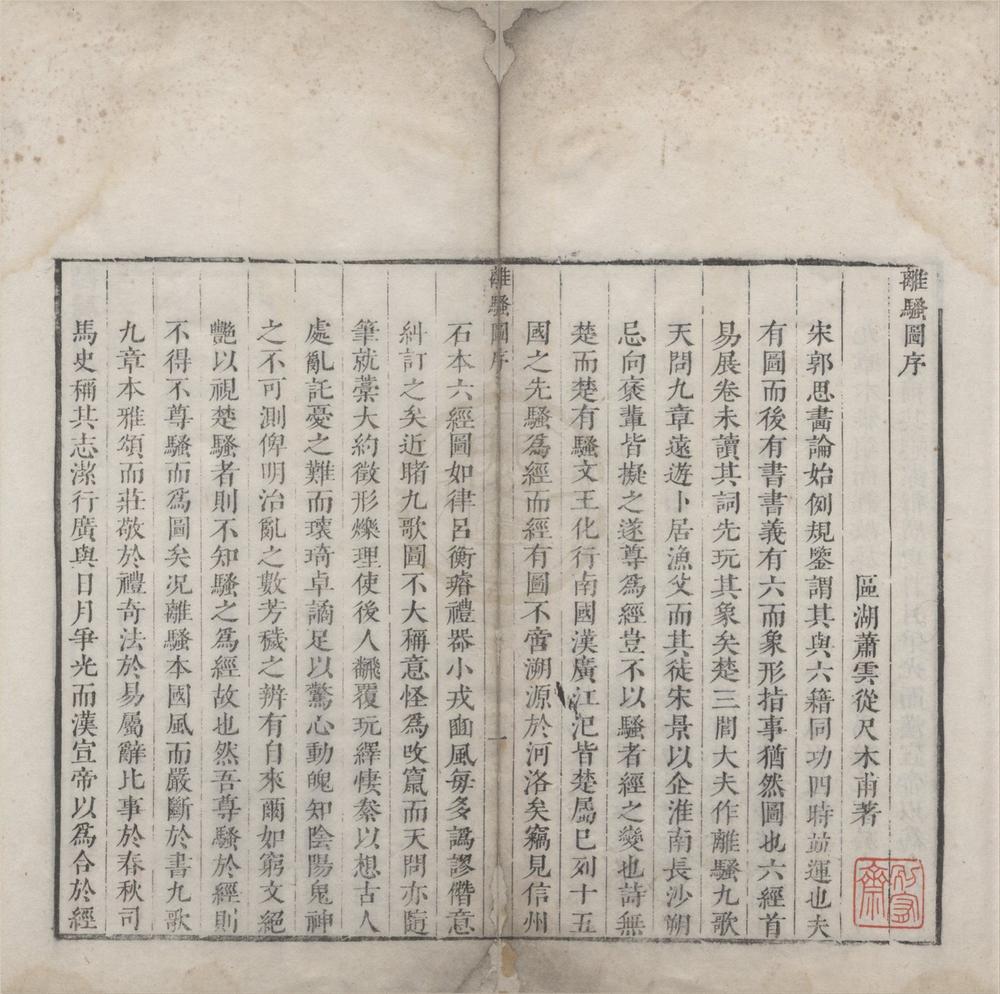 離騷圖序
區湖蕭雲從尺木甫著
宋郭思畵論始例規鑒謂其與六籍同功四時竝運也夫
有圖而後有書書義有六而象形指事猶然圖也六經首
易展卷未讀其詞先玩其象矣楚三閭大夫作離騷九歌
天問九章遠遊卜居漁父而其徒宋景以企淮南長沙朔
忌向褒輩皆擬之遂尊爲經豈不以騷者經之變也詩無
楚而楚有騷文王化行南國漢廣江汜皆楚屬已列十五
國之先騷爲經而經有圖不啻溯源於河洛矣竊見信州
離騷圖序
一
石本六經圖如律呂衡璿禮器小戎豳風每多譌謬僭意
糾訂之矣近睹九歌圖不大稱意怪爲攺竄而天問亦隨
筆就藁大約徵形爍理使後人飜覆玩繹悽𥠖以想古人
處亂託憂之難而瓌琦卓譎足以驚心動魄知陰陽鬼神
之不可測俾明治亂之數芳穢之辨有自來爾如窮文絕
艷以視楚騷者則不知騷之爲經故也然吾尊騷於經則
不得不尊騷而爲圖矣况離騷本國風而嚴斷於書九歌
九章本雅頌而莊敬於禮奇法於易屬辭比事於春秋司
馬史稱其志潔行廣與日月爭光而漢宣帝以爲合於經